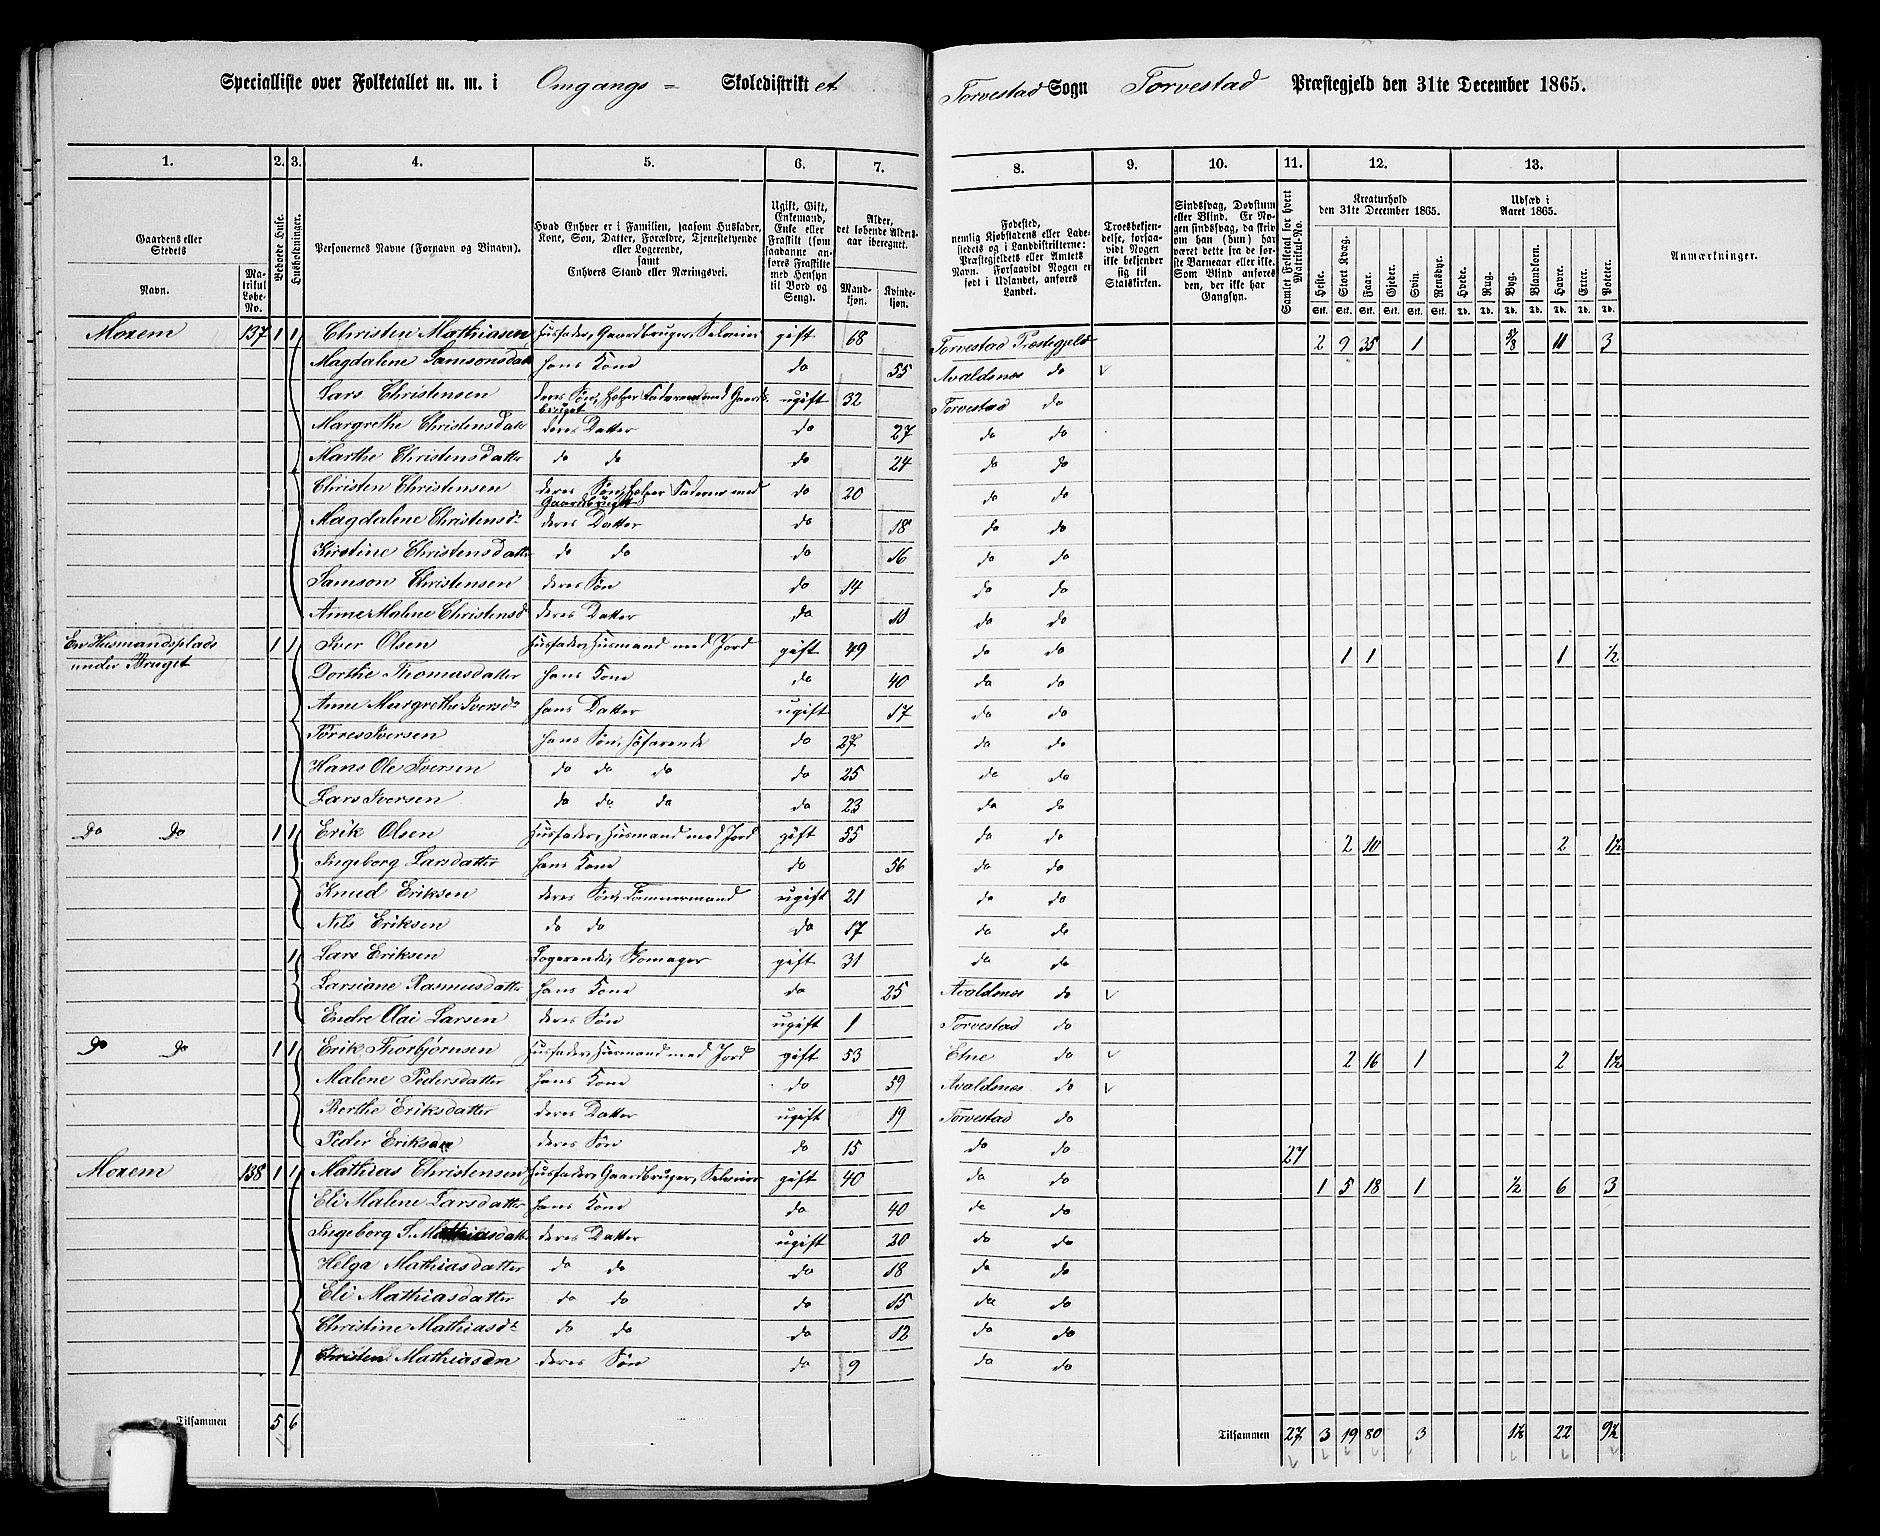 Specialliste over Folketallet m. m. i Omgangs = Skoledistriktet Torvestad Sogn Torvestad Præstegjeld den 31te December 1865.
1. 2. 3. 4. 5. 6. 7. 8. 9. 10. 11. 12. 13.
Gaardens eller Stedets
Navn.
Matrikul Løbe-No.
Beboede Huse.
Husholdninger.
Personernes Navne (Fornavn og Binavn).
Hvad Enhver er i Familien, saasom Husfader, Kone, Søn, Datter, Forældre, Tjenestetyende eller Logerende, samt Enhvers Stand eller Næringsvei.
Ugift, Gift, Enkemand, Enke eller Fraskilt (som saadanne anføres Fraskilte med Hensyn til Bord og Seng).
Alder, det løbende Aldersaar iberegnet.
Mandkjøn.
Kvindekjøn.
Fødested, nemlig Kjøbstadens eller Ladestedets og i Landdistrikterne: Præstegjeldets eller Amtets Navn. Forsaavidt Nogen er født i Udlandet, anføres Landet.
Troesbekjendelse, forsaavidt Nogen ikke bekjender sig til Statskirken.
Sindssvag, Døvstum eller Blind. Er Nogen sindssvag, da skrives om han (hun) har været dette fra de første Barneaar eller ikke. Som Blind anføres den, der ikke har Gangsyn.
Samlet Folketal for hvert Matrikul-No.
Kreaturhold den 31te December 1865.
Heste. Stort Kvæg. Faar. Gjeder. Svin. Rensdyr.
Stk. Stk. Stk. Stk. Stk. Stk.
Udsæd i Aaret 1865.
Hvede. Rug. Byg. Blandkorn. Havre. Erter. Poteter.
Td. Td. Td. Td. Td. Td. Td.
Anmærkninger.
Moxem 137 1 1 Christen Mathiasen Husfader, Gaardbruger, Selveier gift 68 Torvestad Præstegjeld 2 9 35 1 5/8 11 3
Magdalene Samsonsdatt hans Kone do 55 Avaldsnes do
Lars Christensen deres Søn, hjelper Faderen med Gaardsbruget ugift 32 Torvestad do
Margrethe Christensdatt deres Datter do 27 do do
Marthe Christensdatter do do do 24 do do
Christen Christensen deres Søn, hjelper Faderen med Gaardsbruget do 20 do do
Magdalene Christensdr deres Datter do 18 do do
Kirstine Christensdatter do do do 16 do do
Samson Christensen deres Søn do 14 do do
Anne Malene Christensd deres Datter do 10 do do
En Husmandsplads under Bruget 1 1 Iver Olsen Husfader, Husmand med Jord gift 49 do do 1 1 1 1/2
Dorthe Thomasdatter hans Kone do 40 do do
Anne Margrethe Iversdr hans Datter ugift 17 do do
Torres Iversen hans Søn, Søfarende do 27 do do
Hans Ole Iversen do do do do 25 do do
Lars Iversen do do do do 23 do do
Do Do 1 1 Erik Olsen Husfader, Husmand med Jord gift 55 do do 2 10 2 1 1/2
Ingeborg Larsdatter hans Kone do 56 do do
Knud Eriksen deres Søn, Tømmermand ugift 21 do do
Nils Eriksen do do do 17 do do
1 Lars Eriksen Logerende, Skomager gift 31 do do
Larsiane Rasmusdatter hans Kone do 25 Avaldsnes do
Endre Olai Larsen deres Søn ugift 1 Torvestad do
Do Do 1 1 Erik Thorbjørnsen Husfader, Husmand med Jord gift 53 Etne do 2 16 1 2 1 1/2
Malene Pedersdatter hans Kone do 59 Avaldsnes do
Berthe Eriksdatter deres Datter ugift 19 Torvestad do
Peder Eriksen deres Søn do 15 do do 27
Moxem 138 1 1 Mathias Christensen Husfader, Gaardbruger, Selveier gift 40 do do 1 5 18 1 1/2 6 3
Eli Malene Larsdatter hans Kone do 40 do do
Ingeborg S. Mathiasdatter deres Datter ugift 20 do do
Helga Mathiasdatter do do do 18 do do
Eli Mathiasdatter do do do 15 do do
Christine Mathiasdr do do do 12 do do
Christen Mathiasen deres Søn do 9 do do
Tilsammen 5 6 Tilsammen 27 3 19 80 3 1 1/8 22 9 1/2